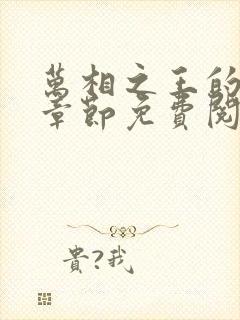 萬相之王的
章節免費閱
貴?我